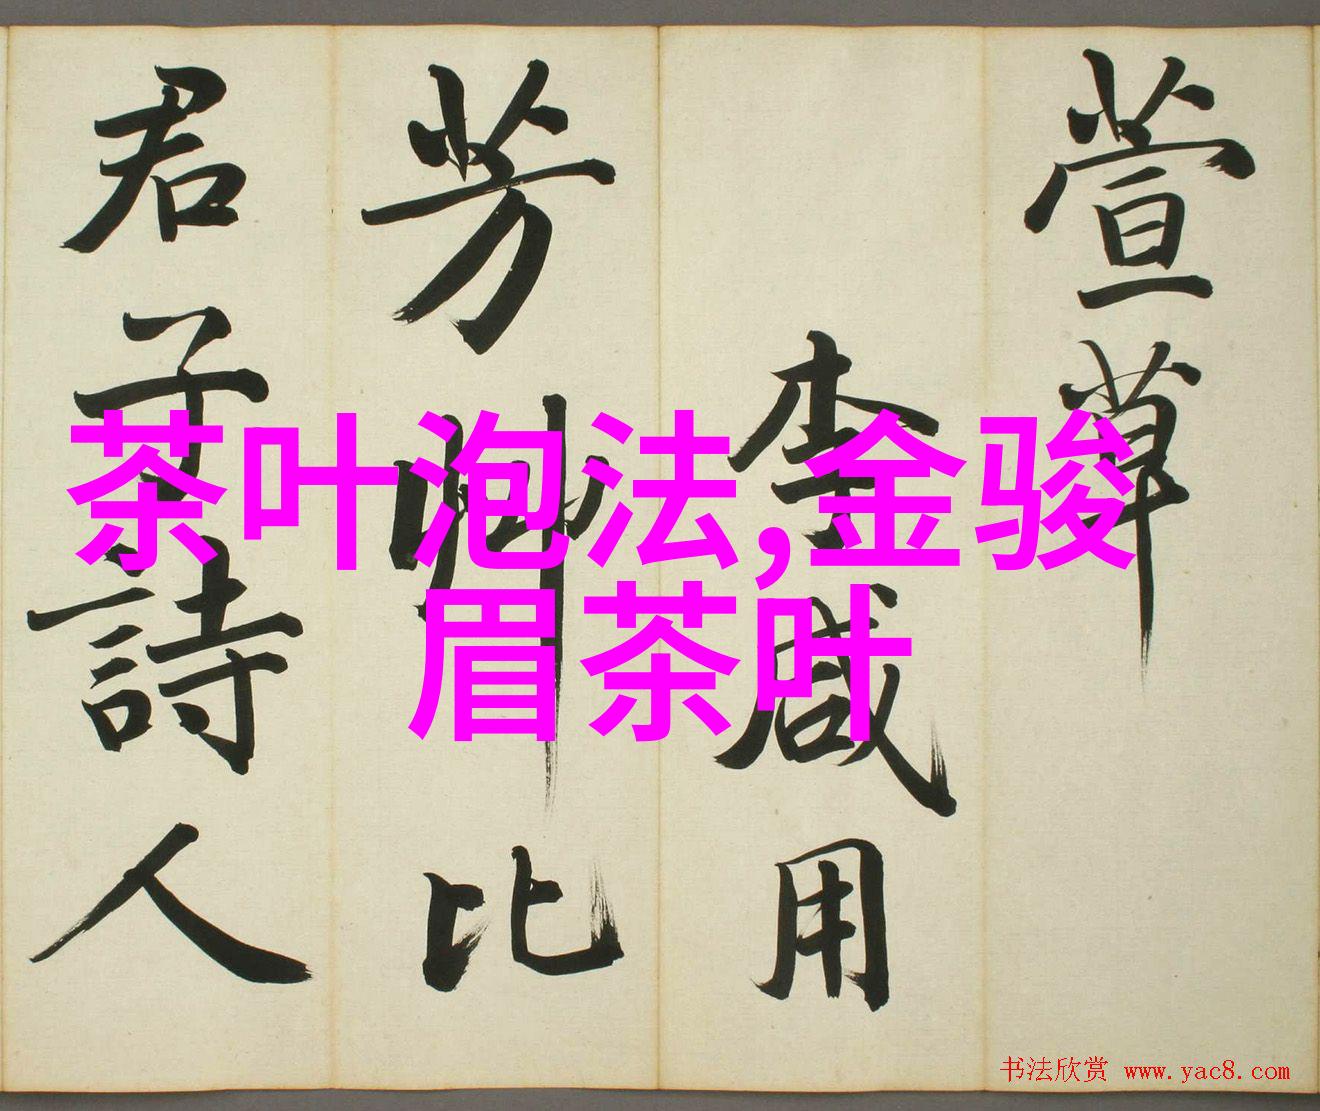 萱草
李咸用
芳草比
君子詩人
茶叶泡法,金骏
眉茶叶
书法欣赏 www.yac8.com